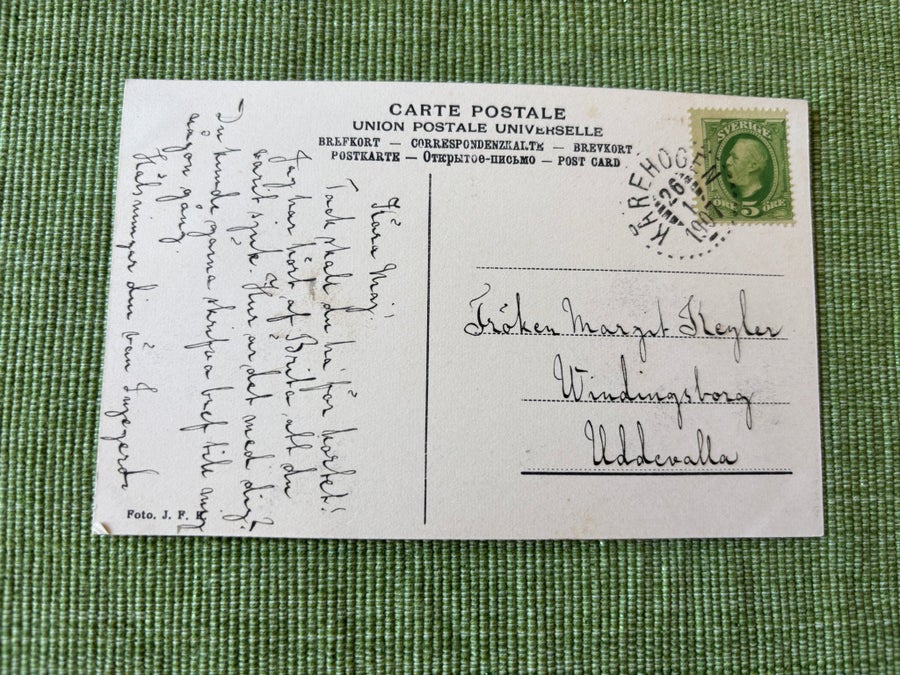 CARTE POSTALE
UNION POSTALE UNIVERSELLE
BREFKORT — CORRESPONDENZKALTE — BREVKORT
POSTKARTE — Открытое-письмо — POST CARD
SVERIGE
ÖRE 5 ÖRE
KÅREHOGEN
26
1
1907
Kära Maj!
Tack skall du ha' för kortet!
Jag har hört af Britta, att du
varit sjuk. Hur är det med dig?
Du kunde gärna skrifva bref till mig
någon gång.
Hälsningar din vän Ingegerd
Fröken Margit Kegler
Windingsborg
Uddevalla
Foto. J. F.